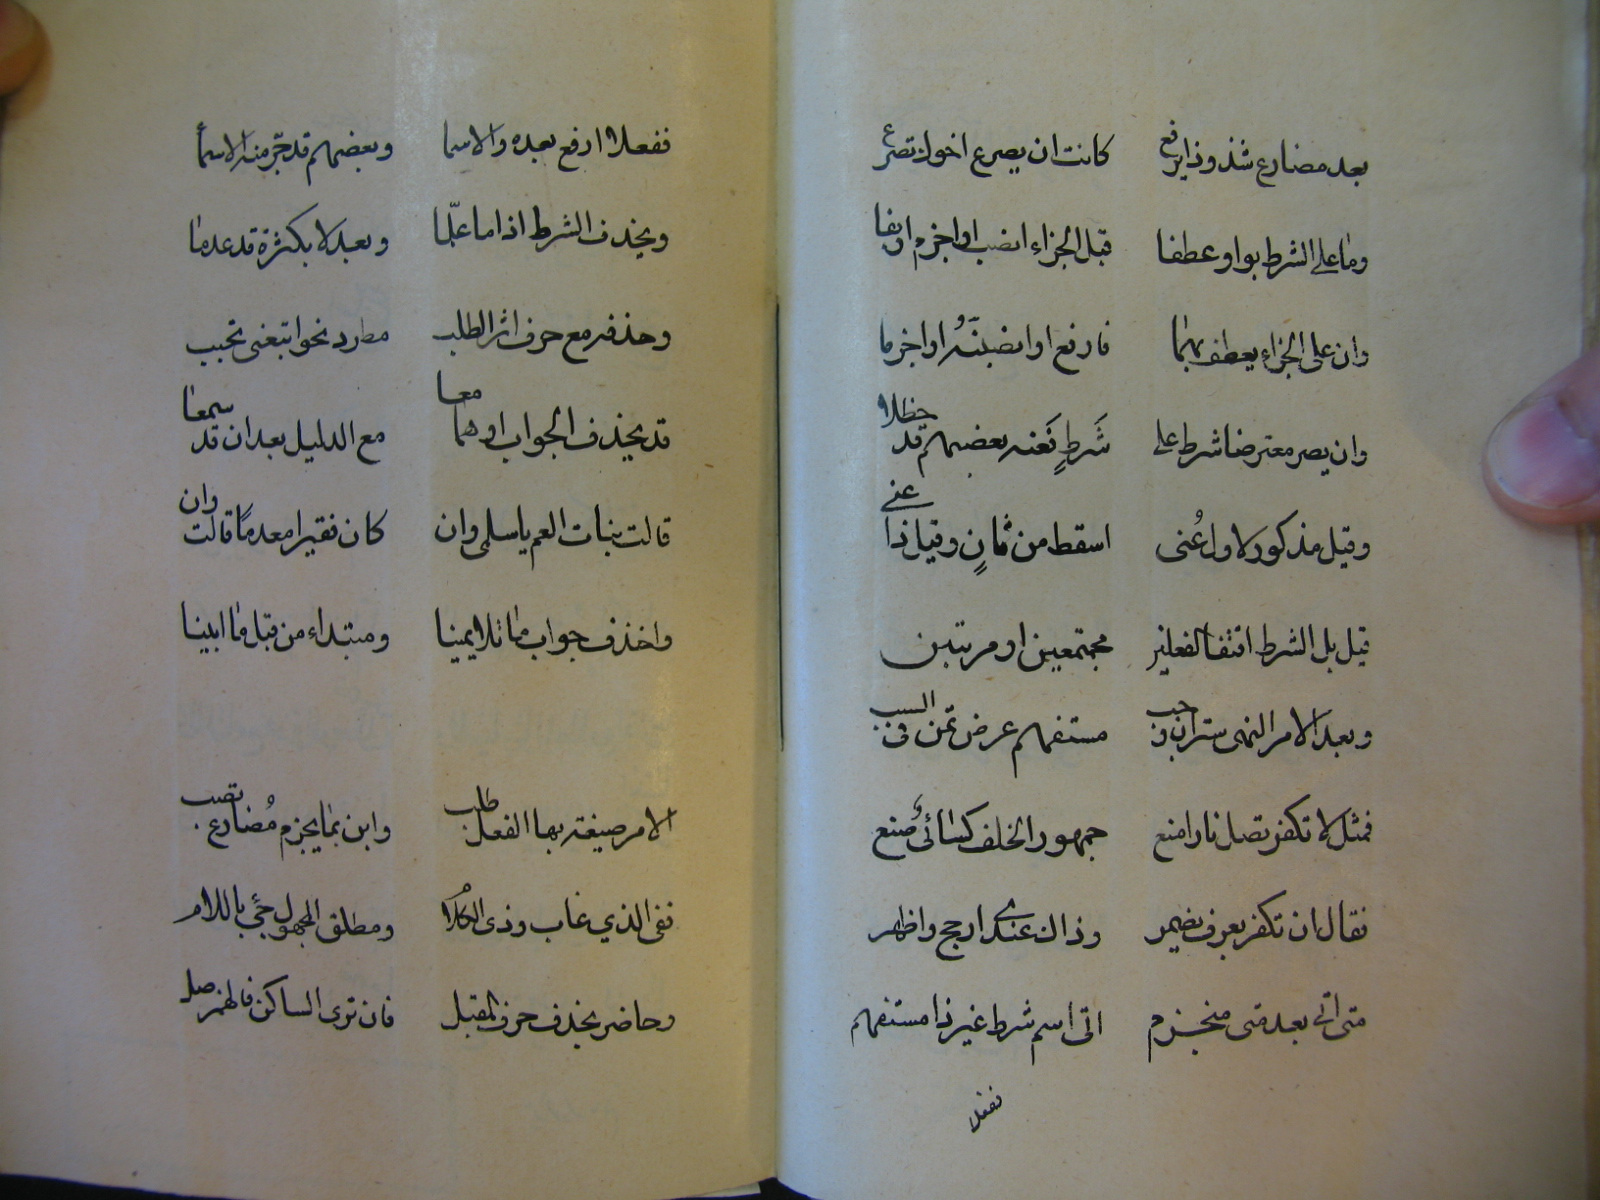 بعد مضارع شذوذا يرفع كانت ان يصرع اخوك تصرع
وما على الشرط بواو عطفا قبل الجزاء انصب او اجزم او بفا
وان على الجزاء يعطف بهما فارفع او انصبنه او اجزما
وان يصر معترضا شرط على شرط نعنه بعضهم قد حظلا
وقيل مذكور لاول عنى اسقط من ثمان وقيل ذا عنى
قيل بل الشرط اقتفا الفعلين مجتمعين او مرتبين
وبعد الامر النهى ستران وجب مستفهم عرض تمن فى السبب
فمثل لا تكفر تصل نارا منع جمهور الخلف كسائى صنع
نقال ان تكفر بعرف يضمر وذاك عندى ارجح واظهر
متى اتى بعد متى منجزم اتى اسم شرط غير ذا مستفهم
نفعلا
ففعلا ارفع بعده والاسما وبعضهم قد جر منه الاسما
ويحذف الشرط اذا ما علما وبعد لا بكثرة قد عدما
وحذفه مع حرف اثر الطلب مطرد نحو ابتغنى تحبب
قد يحذف الجواب او هما معا مع الدليل بعد ان قد سمعا
قالت بنات العم يا سلمى وان كان فقيرا معدما قالت وان
واحذف جواب ما تلا يمينا ومبتداء من قبل ما ابينا
الامر صيغة بها الفعل طلب وابن بما يجزم مضارع نصب
نفى الذي غاب وذى الكلام ومطلق المجهول جئ باللام
وحاضر يحذف حرف المقبل فان ترى الساكن فالهمز صل